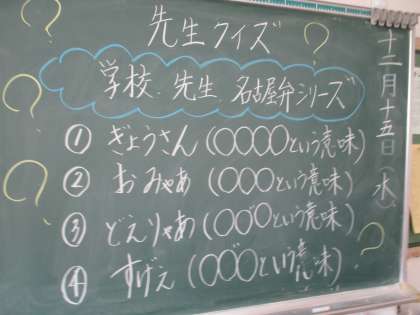 先生クイズ
学校、先生、名古屋弁シリーズ
① ぎょうさん（〇〇〇〇という意味）
② おみゃあ（〇〇〇という意味）
③ どえりゃあ（〇〇゛〇という意味）
④ すげえ（〇〇゛〇という意味）
十二月十五日（水）